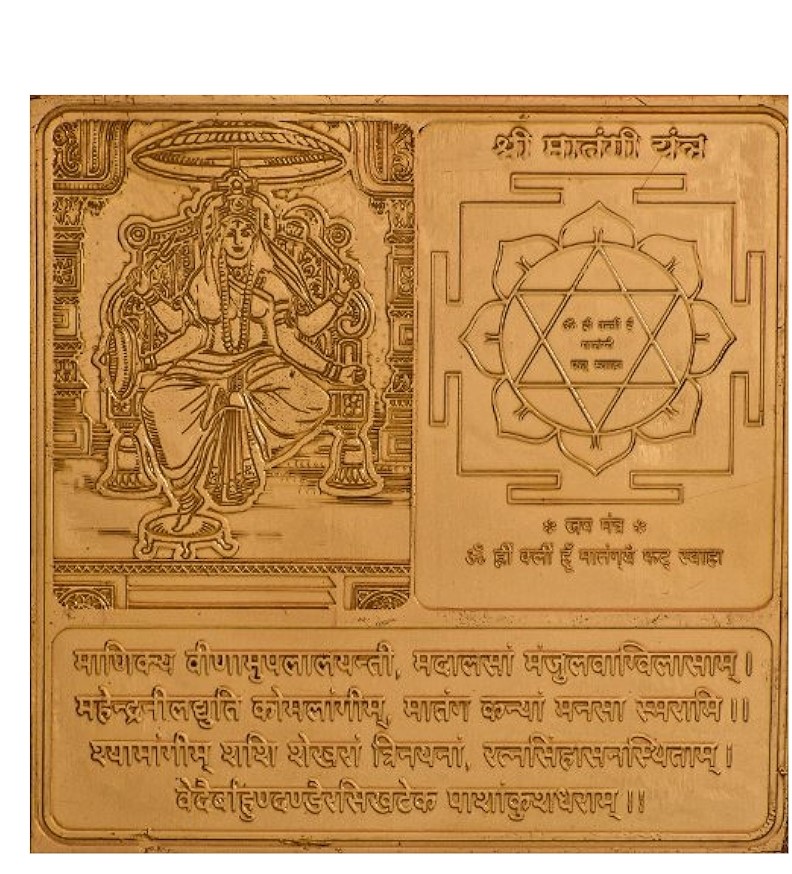 श्री मातंगी यंत्र
ॐ ह्रीं क्लीं हूँ
मातंग्यै
फट् स्वाहा
❉ जप मंत्र ❉
ॐ ह्रीं क्लीं हूँ मातंग्यै फट् स्वाहा
माणिक्य वीणामुपलालयन्ती, मदालसां मंजुलवाग्विलासाम् ।
महेन्द्रनीलद्युति कोमलांगीम्, मातंग कन्यां मनसा स्मरामि ।।
श्यामांगीम् शशि शेखरां त्रिनयनां, रत्नसिंहासनस्थिताम् ।
वेदैर्बाहुण्दण्डैरसिखटेक पाशांकुशधराम् ।।